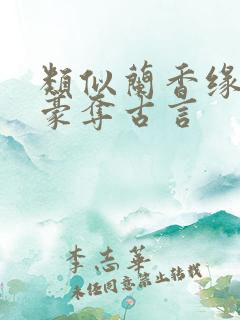 類似蘭香缘
豪奪古言
李志華
未经同意禁止转载